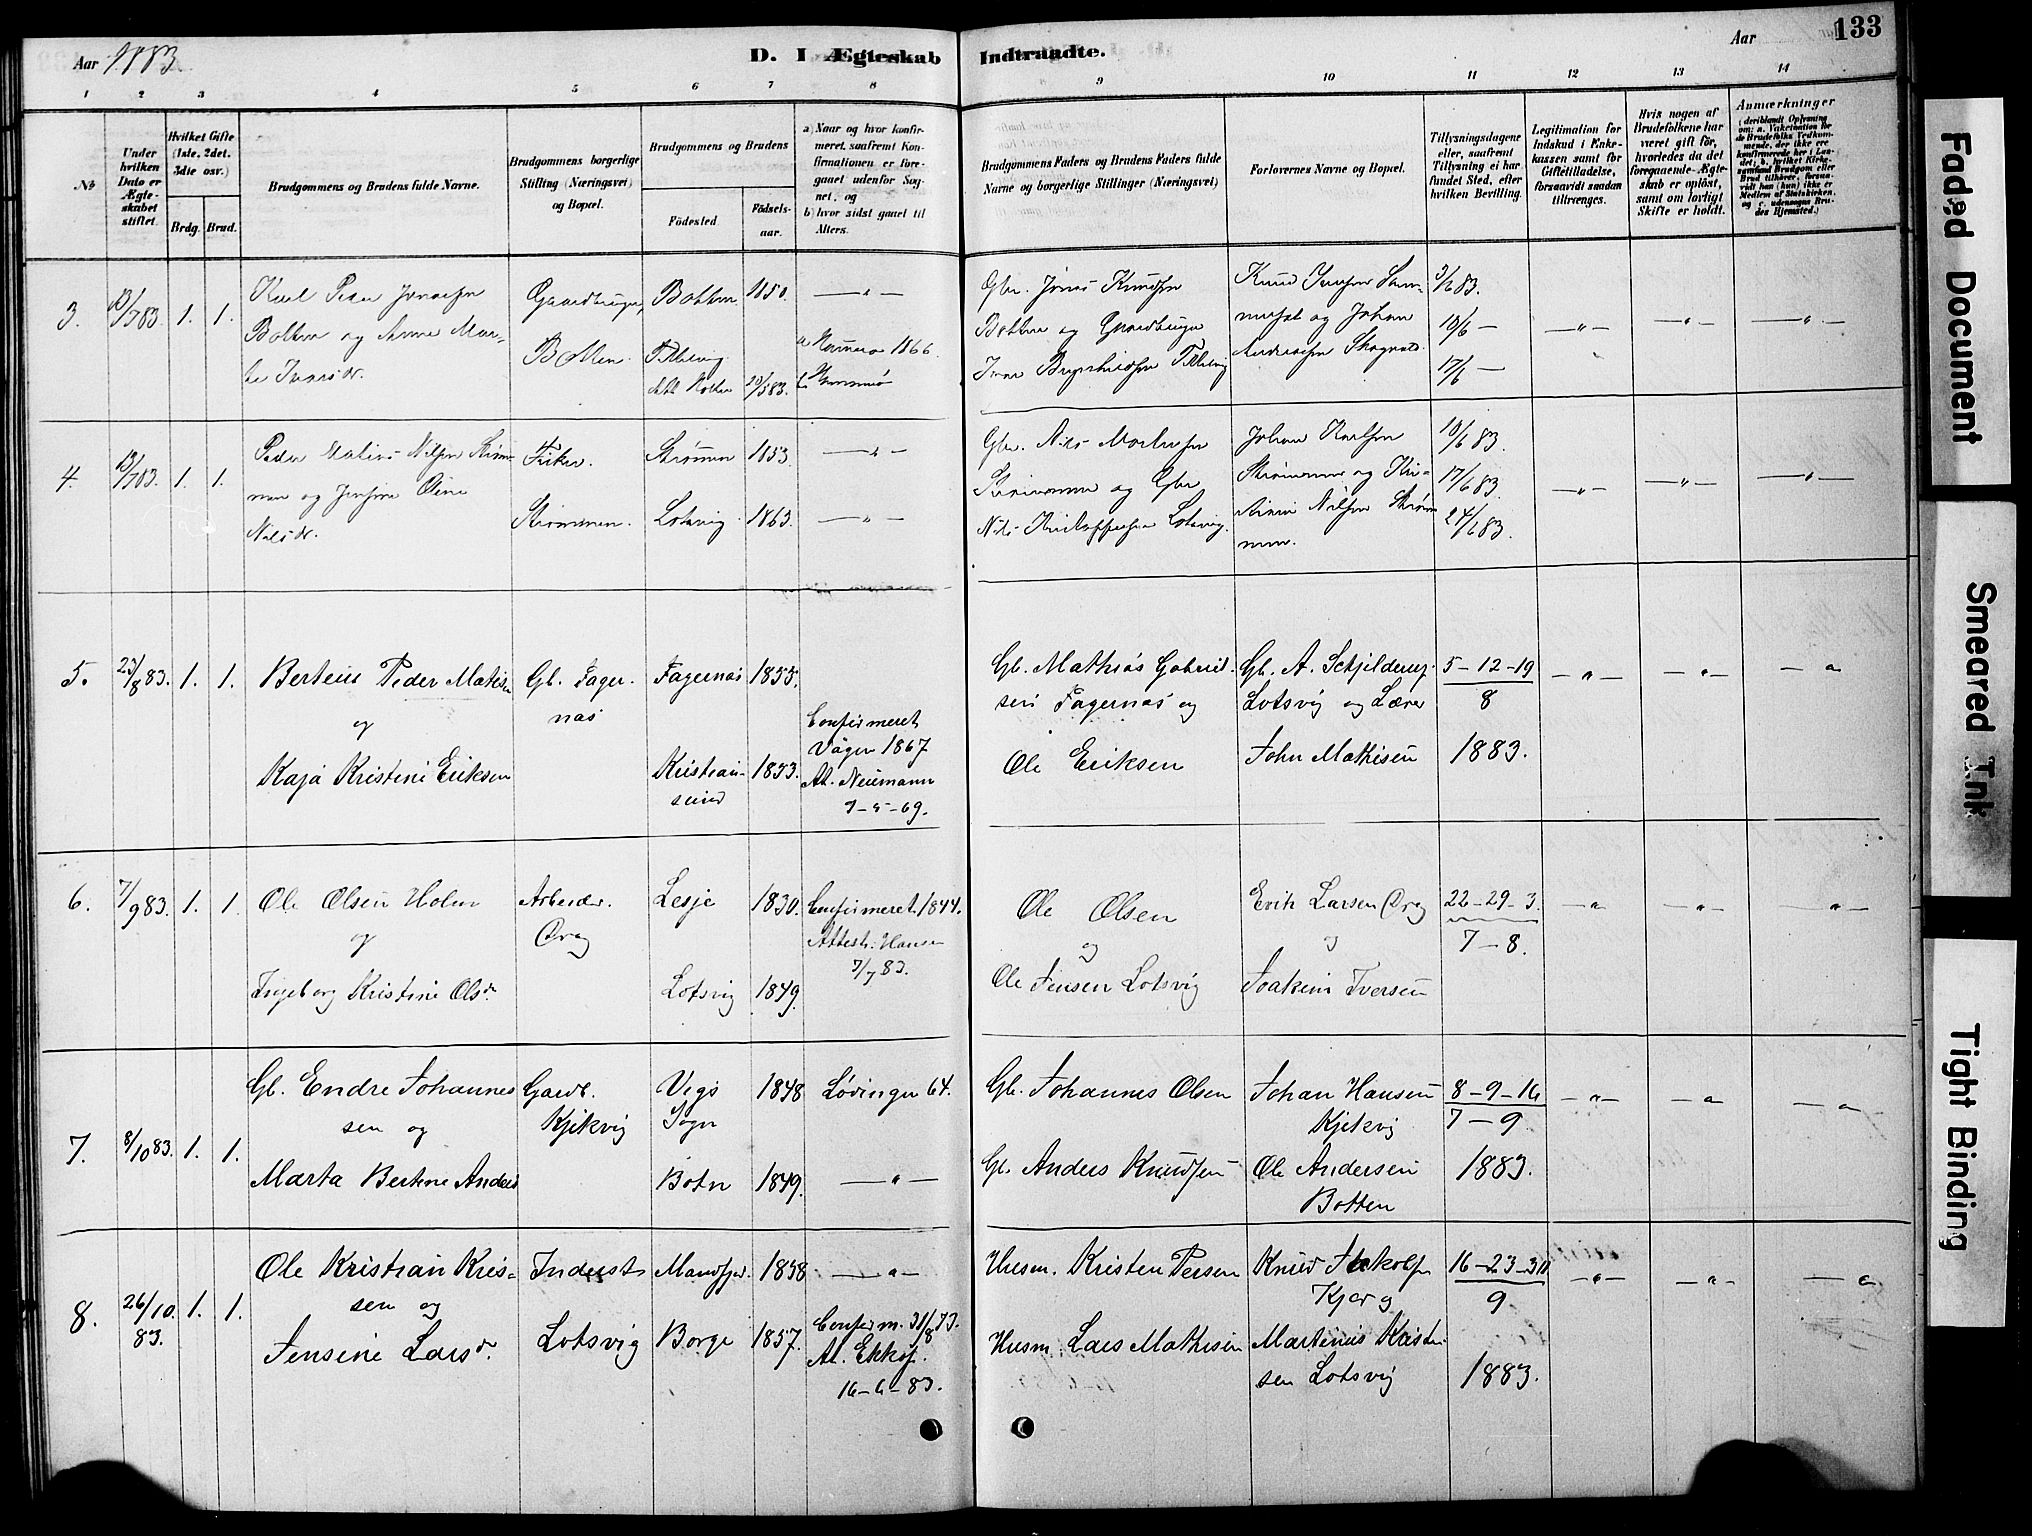 Aar 1883.
D. I Ægteskab Indtraadte.
Aar
133
1 2 3 4 5 6 7 8 9 10 11 12 13 14
No
Under hvilken Dato er Ægteskabet stiftet.
Hvilket Gifte (1ste, 2det, 3die osv.)
Brdg. Brud.
Brudgommens og Brudens fulde Navne.
Brudgommens borgerlige Stilling (Næringsvei) og Bopæl.
Brudgommens og Brudens
Födested
Födsels-aar.
a) Naar og hvor konfirmeret, saafremt Konfirmationen er foregaaet udenfor Sognet, og
b) hvor sidst gaaet til Alters.
Brudgommens Faders og Brudens Faders fulde Navne og borgerlige Stillinger (Næringsvei)
Forlovernes Navne og Bopæl.
Tillysningsdagene eller, saafremt Tillysning ei har fundet Sted, efter hvilken Bevilling.
Legitimation for Indskud i Enkekassen samt for Giftetilladelse, forsaavidt saadan tiltrænges.
Hvis nogen af Brudefolkene har været gift før, hvorledes da det foregaaende Ægteskab er oplöst, samt om lovligt Skifte er holdt.
Anmærkninger
3. 13/7 83. 1. 1.
Karl Peder Jonasen
Botten og Anna Mar-
te Ivarsdr.
Gaardbruger,
Botten.
Botten 1850.
1866
Gbr. Jonas Knudsen
Botten og Gaardbruger
Knud
og Johan
Andreasen
3/6 83.
10/6 —
17/6 —
4. 13/7 83. 1. 1.
Peder Matias Nilsen Strøm-
men og Jensine Oline
Nilsdr.
Fisker.
Strømmen.
Strømmen 1853.
Lotsvig 1863.
Gbr. Nils
Strømmen og Gbr
Nils Kristoffersen Lotsvig.
Johan Karlsen
Strømmen og Kri-
Nilsen Strøm
men.
10/6 83.
17/6 83.
24/6 83.
5. 23/8 83. 1. 1.
Berteus Peder Matisen
og
Kaja Kristine Eriksen
Gb. Fager-
nas
Fagernas 1855.
Kristian-
sund 1853.
Confirmeret
Vågen 1867
At. Neumann
Gb. Mathias Gabriel-
sen Fagernas og
Ole Eriksen
Gb. A. Schjelderup
Lotsvig og Lærer
John Mathisen
5–12–19
8
1883.
6. 7/9 83. 1. 1.
Ole Olsen Holm
og
Ingeborg Kristine Olsdr.
Arbeider.
Ørag
Lesje 1830.
Lotsvig 1849.
Confirmeret 1844.
Attest. Hansen
7/7 83.
Ole Olsen
og
Ole Jensen Lotsvig
Erik Larsen Ørag
og
Joakim Iversen
22–29–3.
7–8.
7. 8/10 83. 1. 1.
Gb. Endre Johannes
sen og
Marta Bertine Anders
Gaardb.
Kjikvig
Vegs
Sogn 1848
Botn 1849.
Lødingen 64.
Gb. Johannes Olsen
Gb. Anders Knudsen
Johan Hansen
Kjikvig
Ole Andersen
Botten
8–9–16
7–9
1883.
8. 26/10 83. 1. 1.
Ole Kristian Kris-
sen og
Jensine Larsdr.
Inderst
Lotsvig
Mandfjor. 1858
Borge 1857.
Confirm. 31/8 73.
At.
16–6–83.
Husm. Kristen Persen
Husm. Lars Mathisen
Knud
Martinus Kristen-
sen Lotsvig
16–23–30
9
1883.
Faded Document
Smeared Ink
Tight Binding